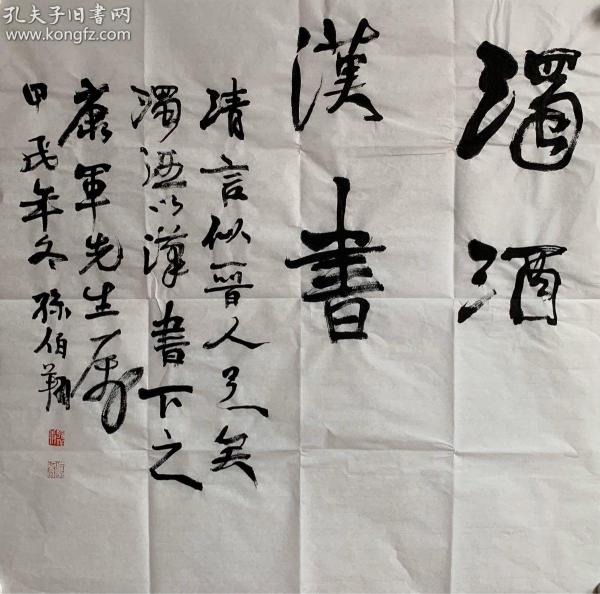 孔夫子旧书网
www.kongfz.com
濁酒
漢書
清言似晉人足矣
濁酒以漢書下之
康軍先生属
甲戌年冬 孫伯翔